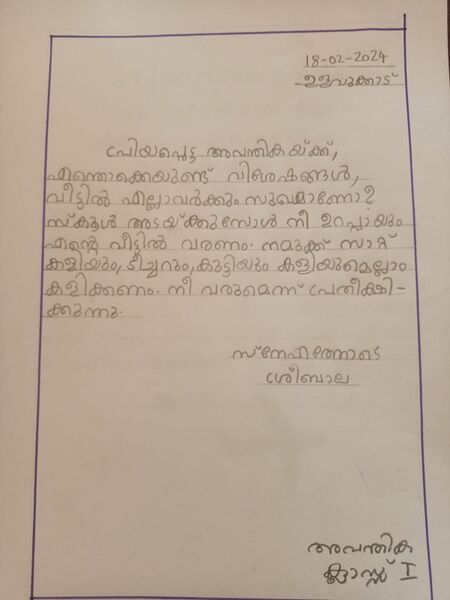 18-02-2024
ഉളവുക്കാട്
പ്രിയപ്പെട്ട അവന്തികയ്ക്ക്,
എന്തൊക്കെയുണ്ട് വിശേഷങ്ങൾ,
വീട്ടിൽ എല്ലാവർക്കും സുഖമാണോ?
സ്കൂൾ അടയ്ക്കുമ്പോൾ നീ ഉറപ്പായും
എന്റെ വീട്ടിൽ വരണം. നമുക്ക് സാറ്റ്
കളിയും, ടീച്ചറും, കുട്ടിയും കളിയുമെല്ലാം
കളിക്കണം. നീ വരുമെന്ന് പ്രതീക്ഷി-
ക്കുന്നു.
സ്നേഹത്തോടെ
ശ്രീബാല
അവന്തിക
ക്ലാസ്സ് I